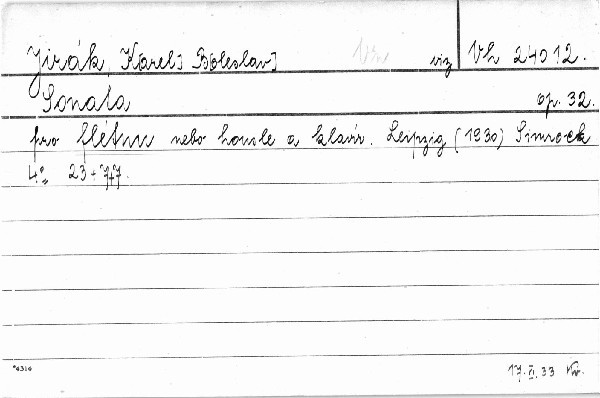 Jirák, Karel[ Boleslav] viz Vh 24012.
Sonata op. 32.
pro flétnu nebo housle a klavír. Leipzig (1930) Simrock
4° 23+7+7.
*6314
17.VI.33